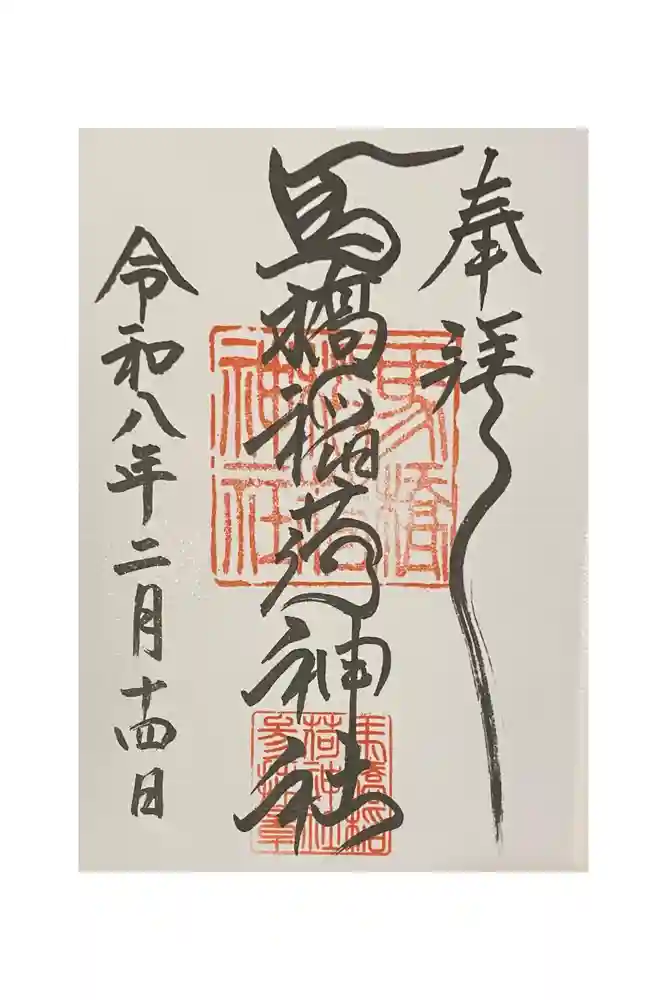 奉拝
馬橋稲荷神社
令和八年二月十四日
馬橋
稲荷
神社
馬橋稲
荷神社
参拝章